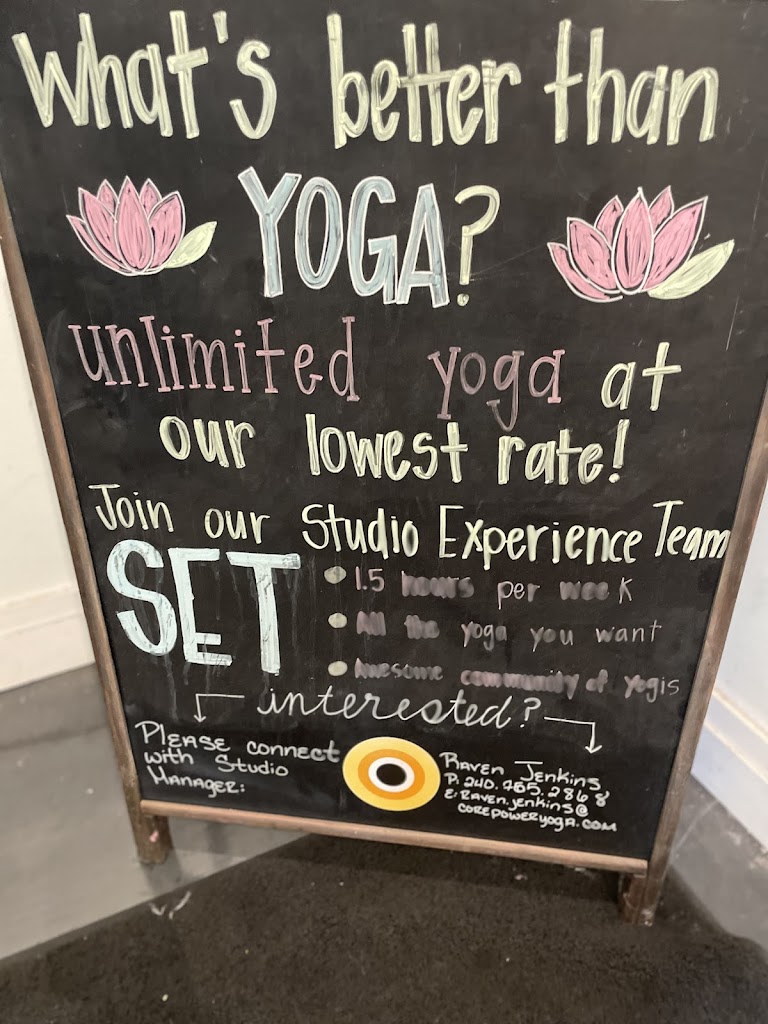 What's better than
YOGA?
unlimited yoga at
our lowest rate!
Join our Studio Experience Team
SET
• 1.5 hours per week
• All the yoga you want
• Awesome community of yogis
interested?
PLEASE CONNECT
WITH STUDIO
MANAGER:
RAVEN JENKINS
P: 240.465.2868
E: RAVEN.JENKINS@
COREPOWERYOGA.COM